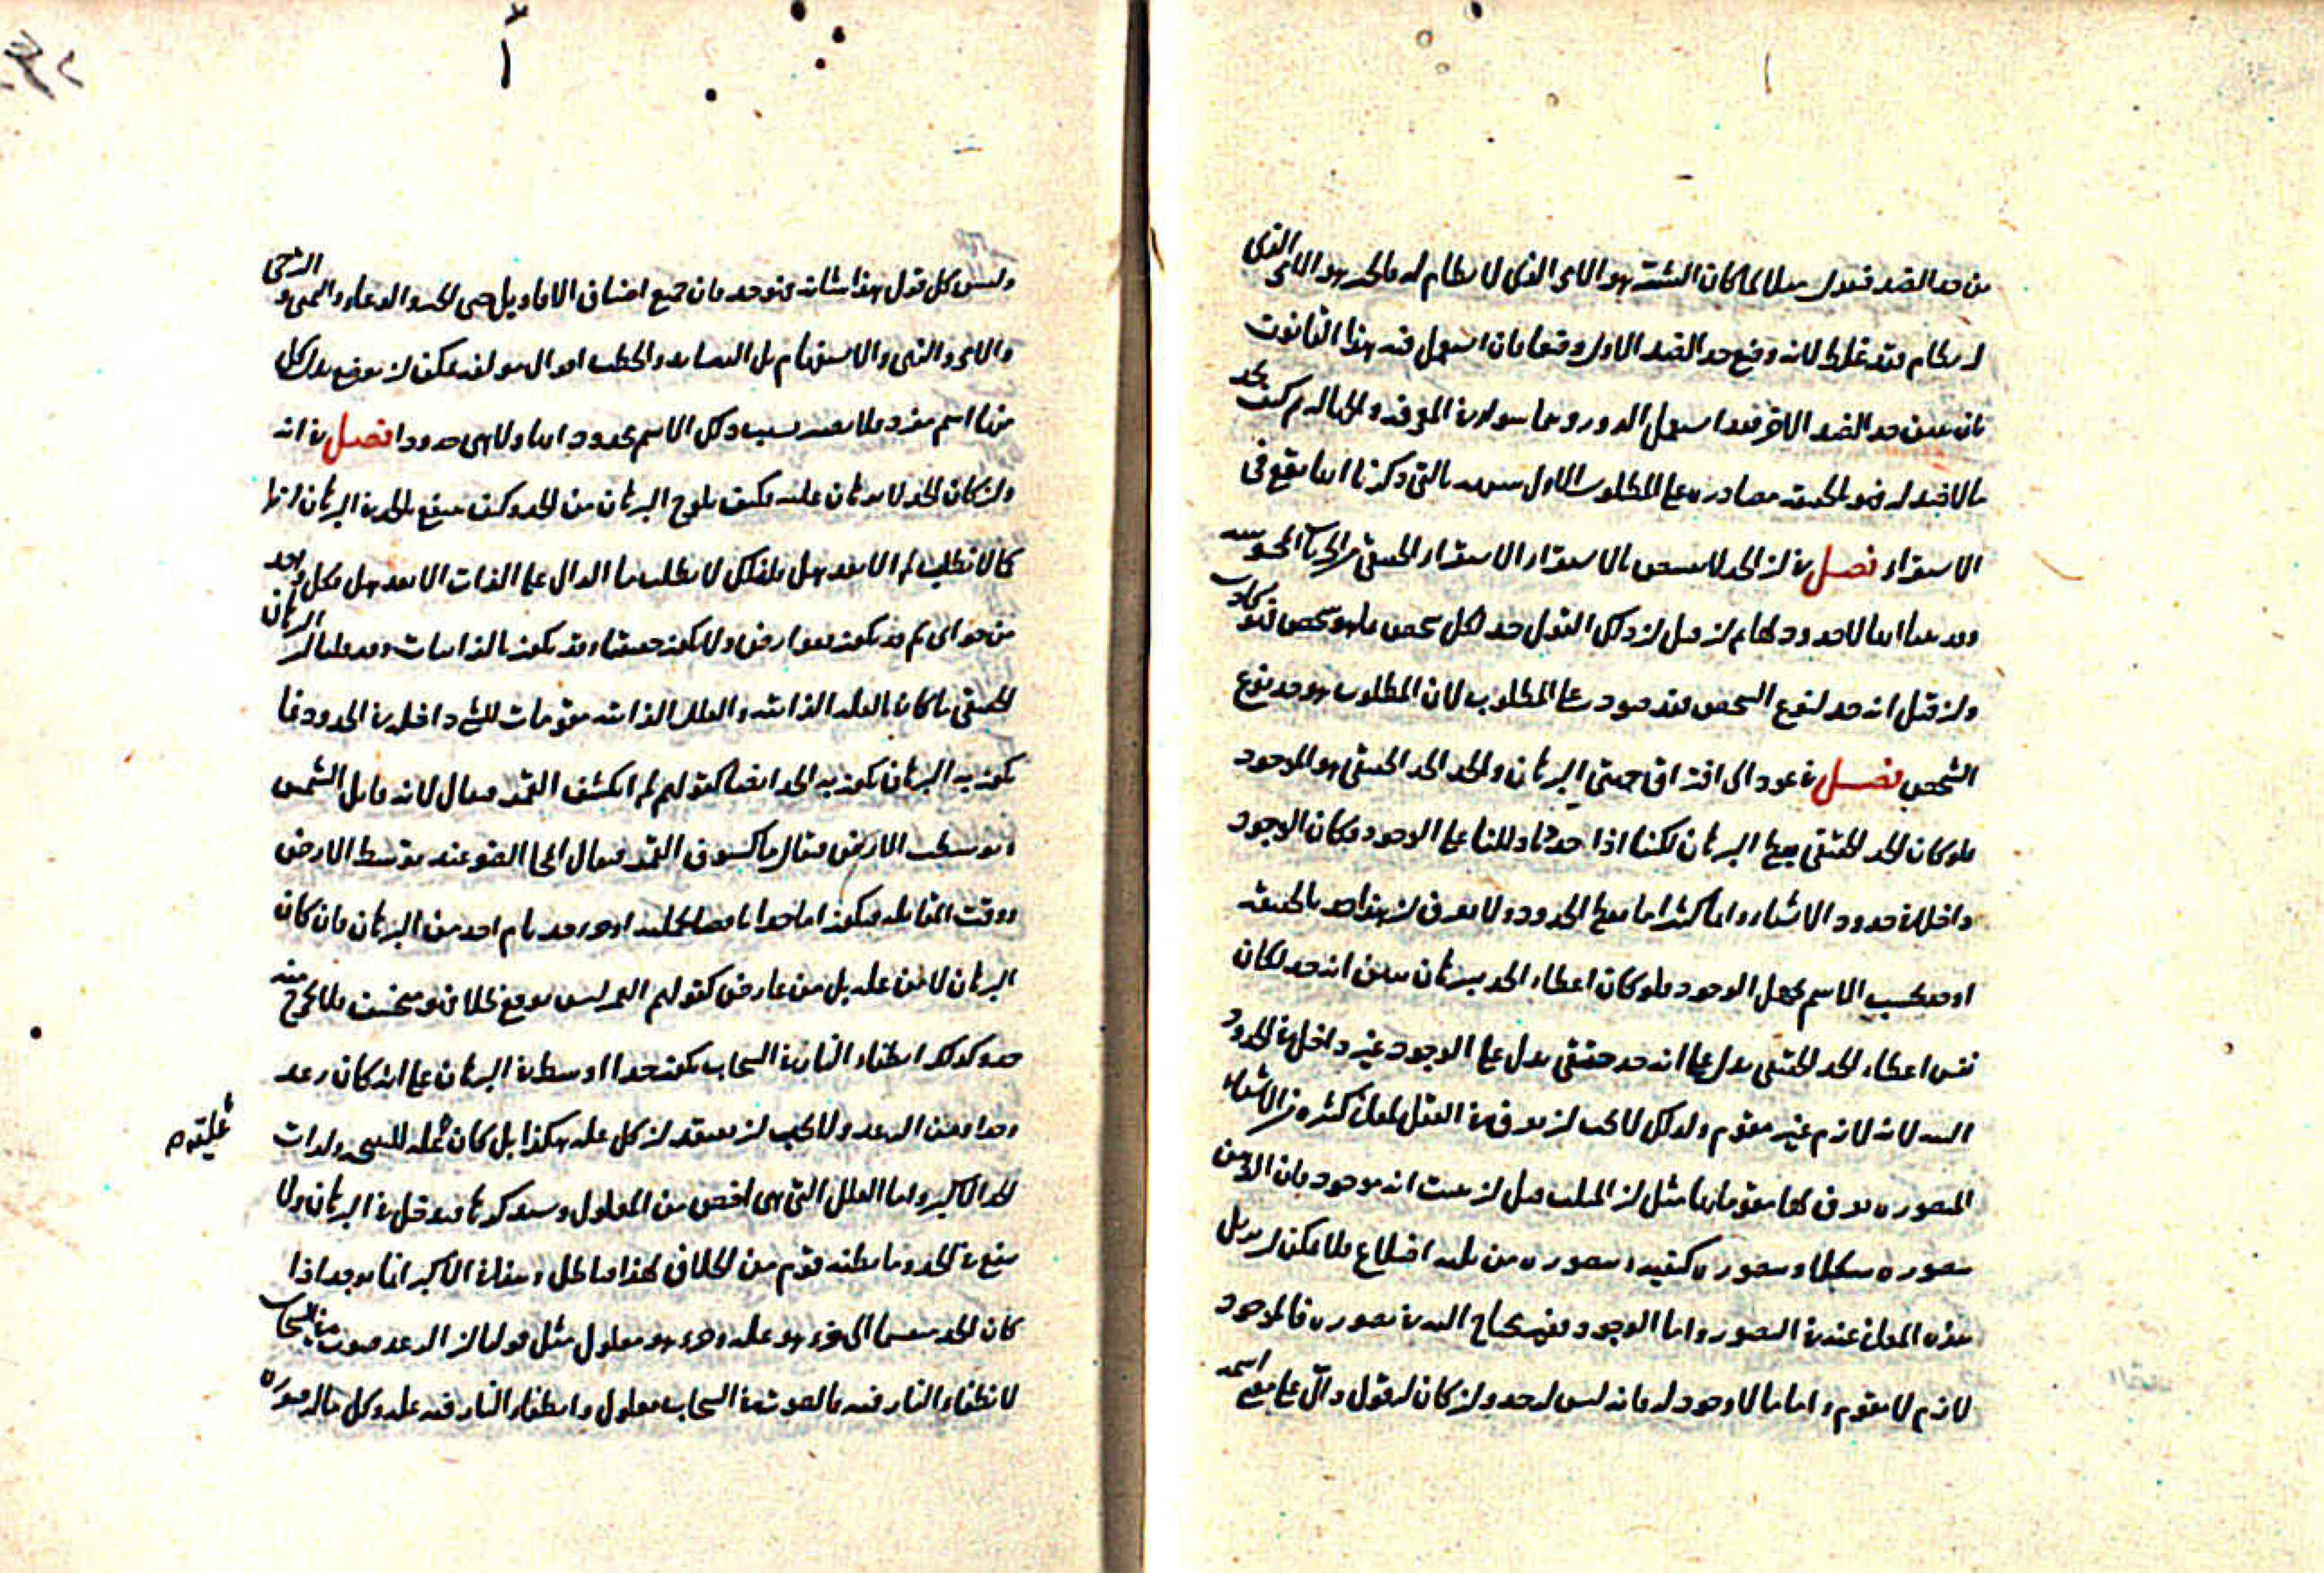 من حد الضد فيقول مثلا لما كان التشتت هو الامر الذي لا نظام له فالحد هو الامر الذي
له نظام فقد غلط لانه وضع حد الضد الاول وضعا فان استعمل فيه هذا القانون
فان بين حد الضد الاخر فقد استعمل الدور وبما سواه في المعرفة والجهالة ثم كيف يحد
ما لا ضد له فهو بالحقيقة مصادرة على المطلوب الاول التي ذكرنا انها يقع في
الاستقراء فصل في ان الحد لا يقتنص بالاستقراء الاستقراء الحقيقي من الجزئيات المحسوسة
وقد علمنا انها لا حدود لها ثم ان قيل ان ذلك القول حد لكل شخص بما هو شخص فهو كاذب
وان قيل انه حد لنوع الشخص فقد صودر على المطلوب لان المطلوب هو حد نوع
الشخص فصل في عود الى افتراق جهتي البرهان والحد الحد الحقيقي هو الموجود
فلو كان الحد الحقيقي يعطي البرهان لكنا اذا حددنا دللنا على الوجود وكان الوجود
داخلا في حدود الاشياء وانا كثيرا ما نعطي الحدود ولا نعرف ان هذا حد بالحقيقة
او هو بحسب الاسم لجهل الوجود فلو كان اعطاء الحد ببرهان يبين انه حد لكان
نفس اعطاء الحد الحقيقي يدل على انه حد حقيقي يدل على الوجود غير داخل في الحدود
البتة لانه لازم غير مقوم ولذلك لا يجب ان يعرف في العقل لمعان كثيرة من الاشياء
المتصورة يعرف لها مقوماتها مثل ان المثلث قبل ان يثبت انه موجود فان الذهن
يتصوره شكلا ويتصوره كيفية ويتصوره من ثلثة اضلاع فلا يمكن ان يزيل
هذه المعاني عنه في التصور واما الوجود فليس يحتاج اليه في تصوره فالموجود
لازم لا مقوم واما ما لا وجود له فانه ليس له حد وان كان له قول دال على معنى اسمه
وليس كل قول هذا شانه فهو حد فان جميع اصناف الاقاويل حتى الخبر والدعاء والتمني والترجي
والامر والنهي والاستفهام بل القصائد والخطب اقوال مولفة يمكن ان يوضع بدل كل
منها اسم مفرد فلا يصير بسبب ذلك الاسم محدودا لها ولا هي حدودا فصل في انه
وان كان الحد لا برهان عليه فكيف يلوح البرهان من الحد وكيف ينتفع بالحد في البرهان انها
كما لا نطلب لم الا بعد هل فلذلك لا نطلب ما الدال على الذات الا بعد هل فكل واحد
من هو اي لم قد يكون بعوارض ولا يكون حقيقيا وقد يكون بالذاتيات وقد علمنا ان البرهان
الحقيقي ما كان بالعلل الذاتية والعلل الذاتية مقومات للشي داخلة في الحدود فما
يكون به البرهان يكون به الحد ايضا كقولهم لم انكسف القمر فيقال لانه قابل الشمس
فتوسطت الارض فيقال ما كسوف القمر فيقال انمحاء الضوء عند توسط الارض
ووقت المقابلة فيكون اما حدا ناقصا للجملة او جزء حد تام احد من البرهان فان كان
البرهان لا من علة بل من عارض كقولهم القمر ليس يوقع ظلا فهو منخسف فلا يخرج منه
حد وكذلك انطفاء النار في السحاب يكون حدا اوسط في البرهان على انه كان رعد
وحدا من الرعد ولا يجب ان يعتقد ان كل علة هكذا بل كان علة للشي ولذات
عليه م
الحد الاكبر واما العلل التي هي اخص من المعلول وسنذكرها فيدخل في البرهان ولا
ينفع في الحد وما يظنه قوم من الخلاف لهذا باطل ومعناه الاكبر انما يوجد اذا
كان الحد منقسما الى جزء هو علة وجزء هو معلول مثل قولنا ان الرعد صوت في السحاب
لانطفاء النار فيه فالصوت في السحاب معلول وانطفاء النار فيه علة وكل ماله صورة